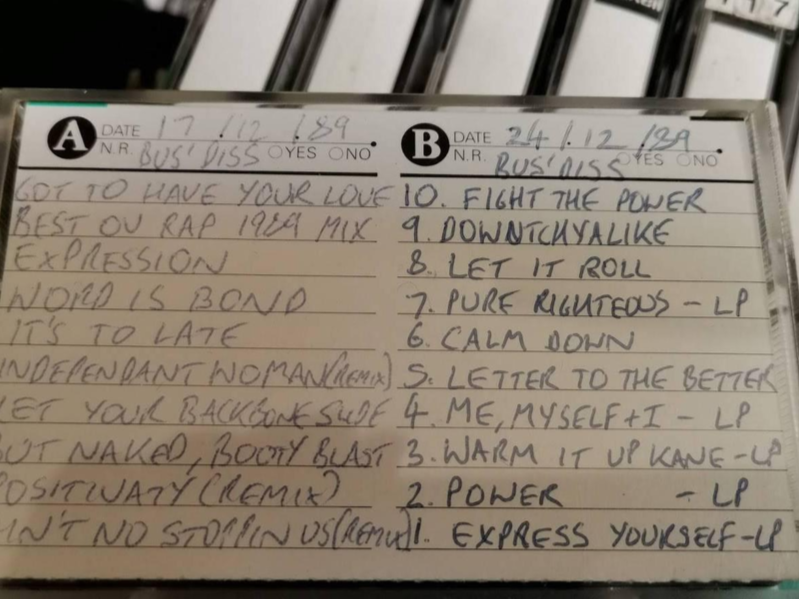 117
A DATE 17/12/89.
N.R. BUS' DISS YES NO
GOT TO HAVE YOUR LOVE
BEST OV RAP 1989 MIX
EXPRESSION
WORD IS BOND
IT'S TO LATE
INDEPENDANT WOMAN (REMIX)
LET YOUR BACKBONE SLIDE
BUT NAKED, BOOTY BLAST
POSITIVATY (REMIX)
AIN'T NO STOPPIN US (REMIX)
B DATE 24/.12/89.
N.R. BUS' DISS YES NO
10. FIGHT THE POWER
9. DOWNTCHYALIKE
8. LET IT ROLL
7. PURE RIGHTEOUS - LP
6. CALM DOWN
5. LETTER TO THE BETTER
4. ME, MYSELF + I - LP
3. WARM IT UP KANE - LP
2. POWER - LP
1. EXPRESS YOURSELF - LP